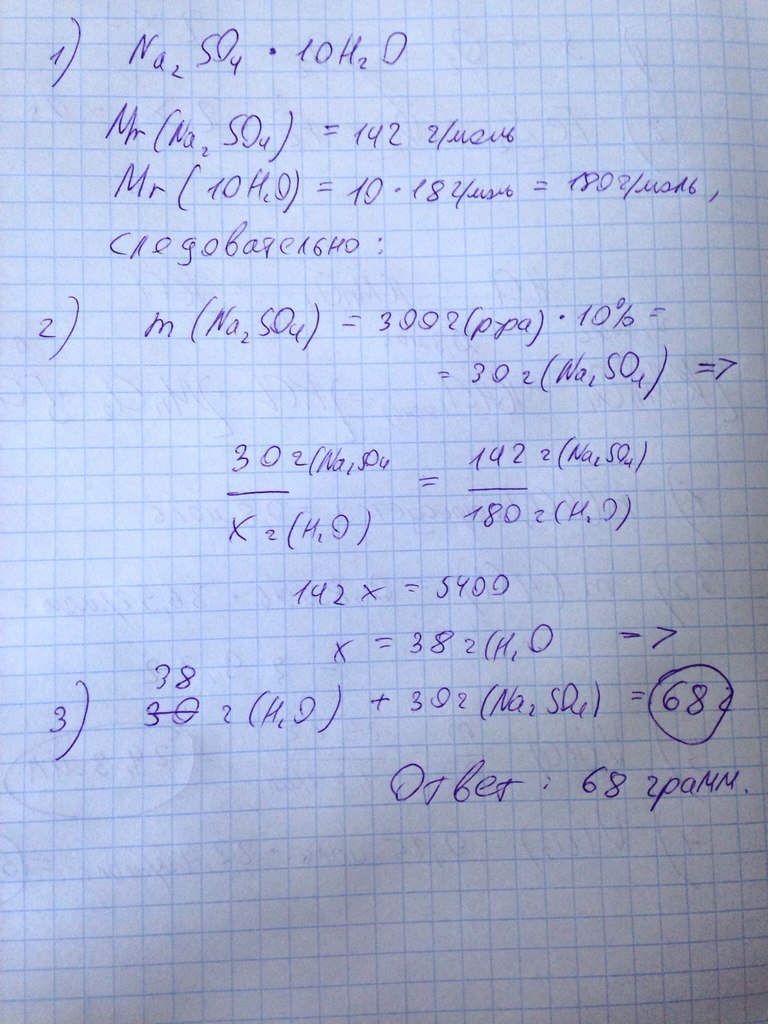 1) Na₂SO₄ · 10H₂O
Mr(Na₂SO₄) = 142 г/моль
Mr(10H₂O) = 10 · 18 г/моль = 180 г/моль,
следовательно:
2) m(Na₂SO₄) = 300 г(р-ра) · 10% =
= 30 г(Na₂SO₄) =>
30 г(Na₂SO₄ = 142 г(Na₂SO₄)
x г(H₂O) 180 г(H₂O)
142 x = 5400
x = 38 г(H₂O =>
38
3) 30 г(H₂O) + 30 г(Na₂SO₄) = 68 г
Ответ: 68 грамм.